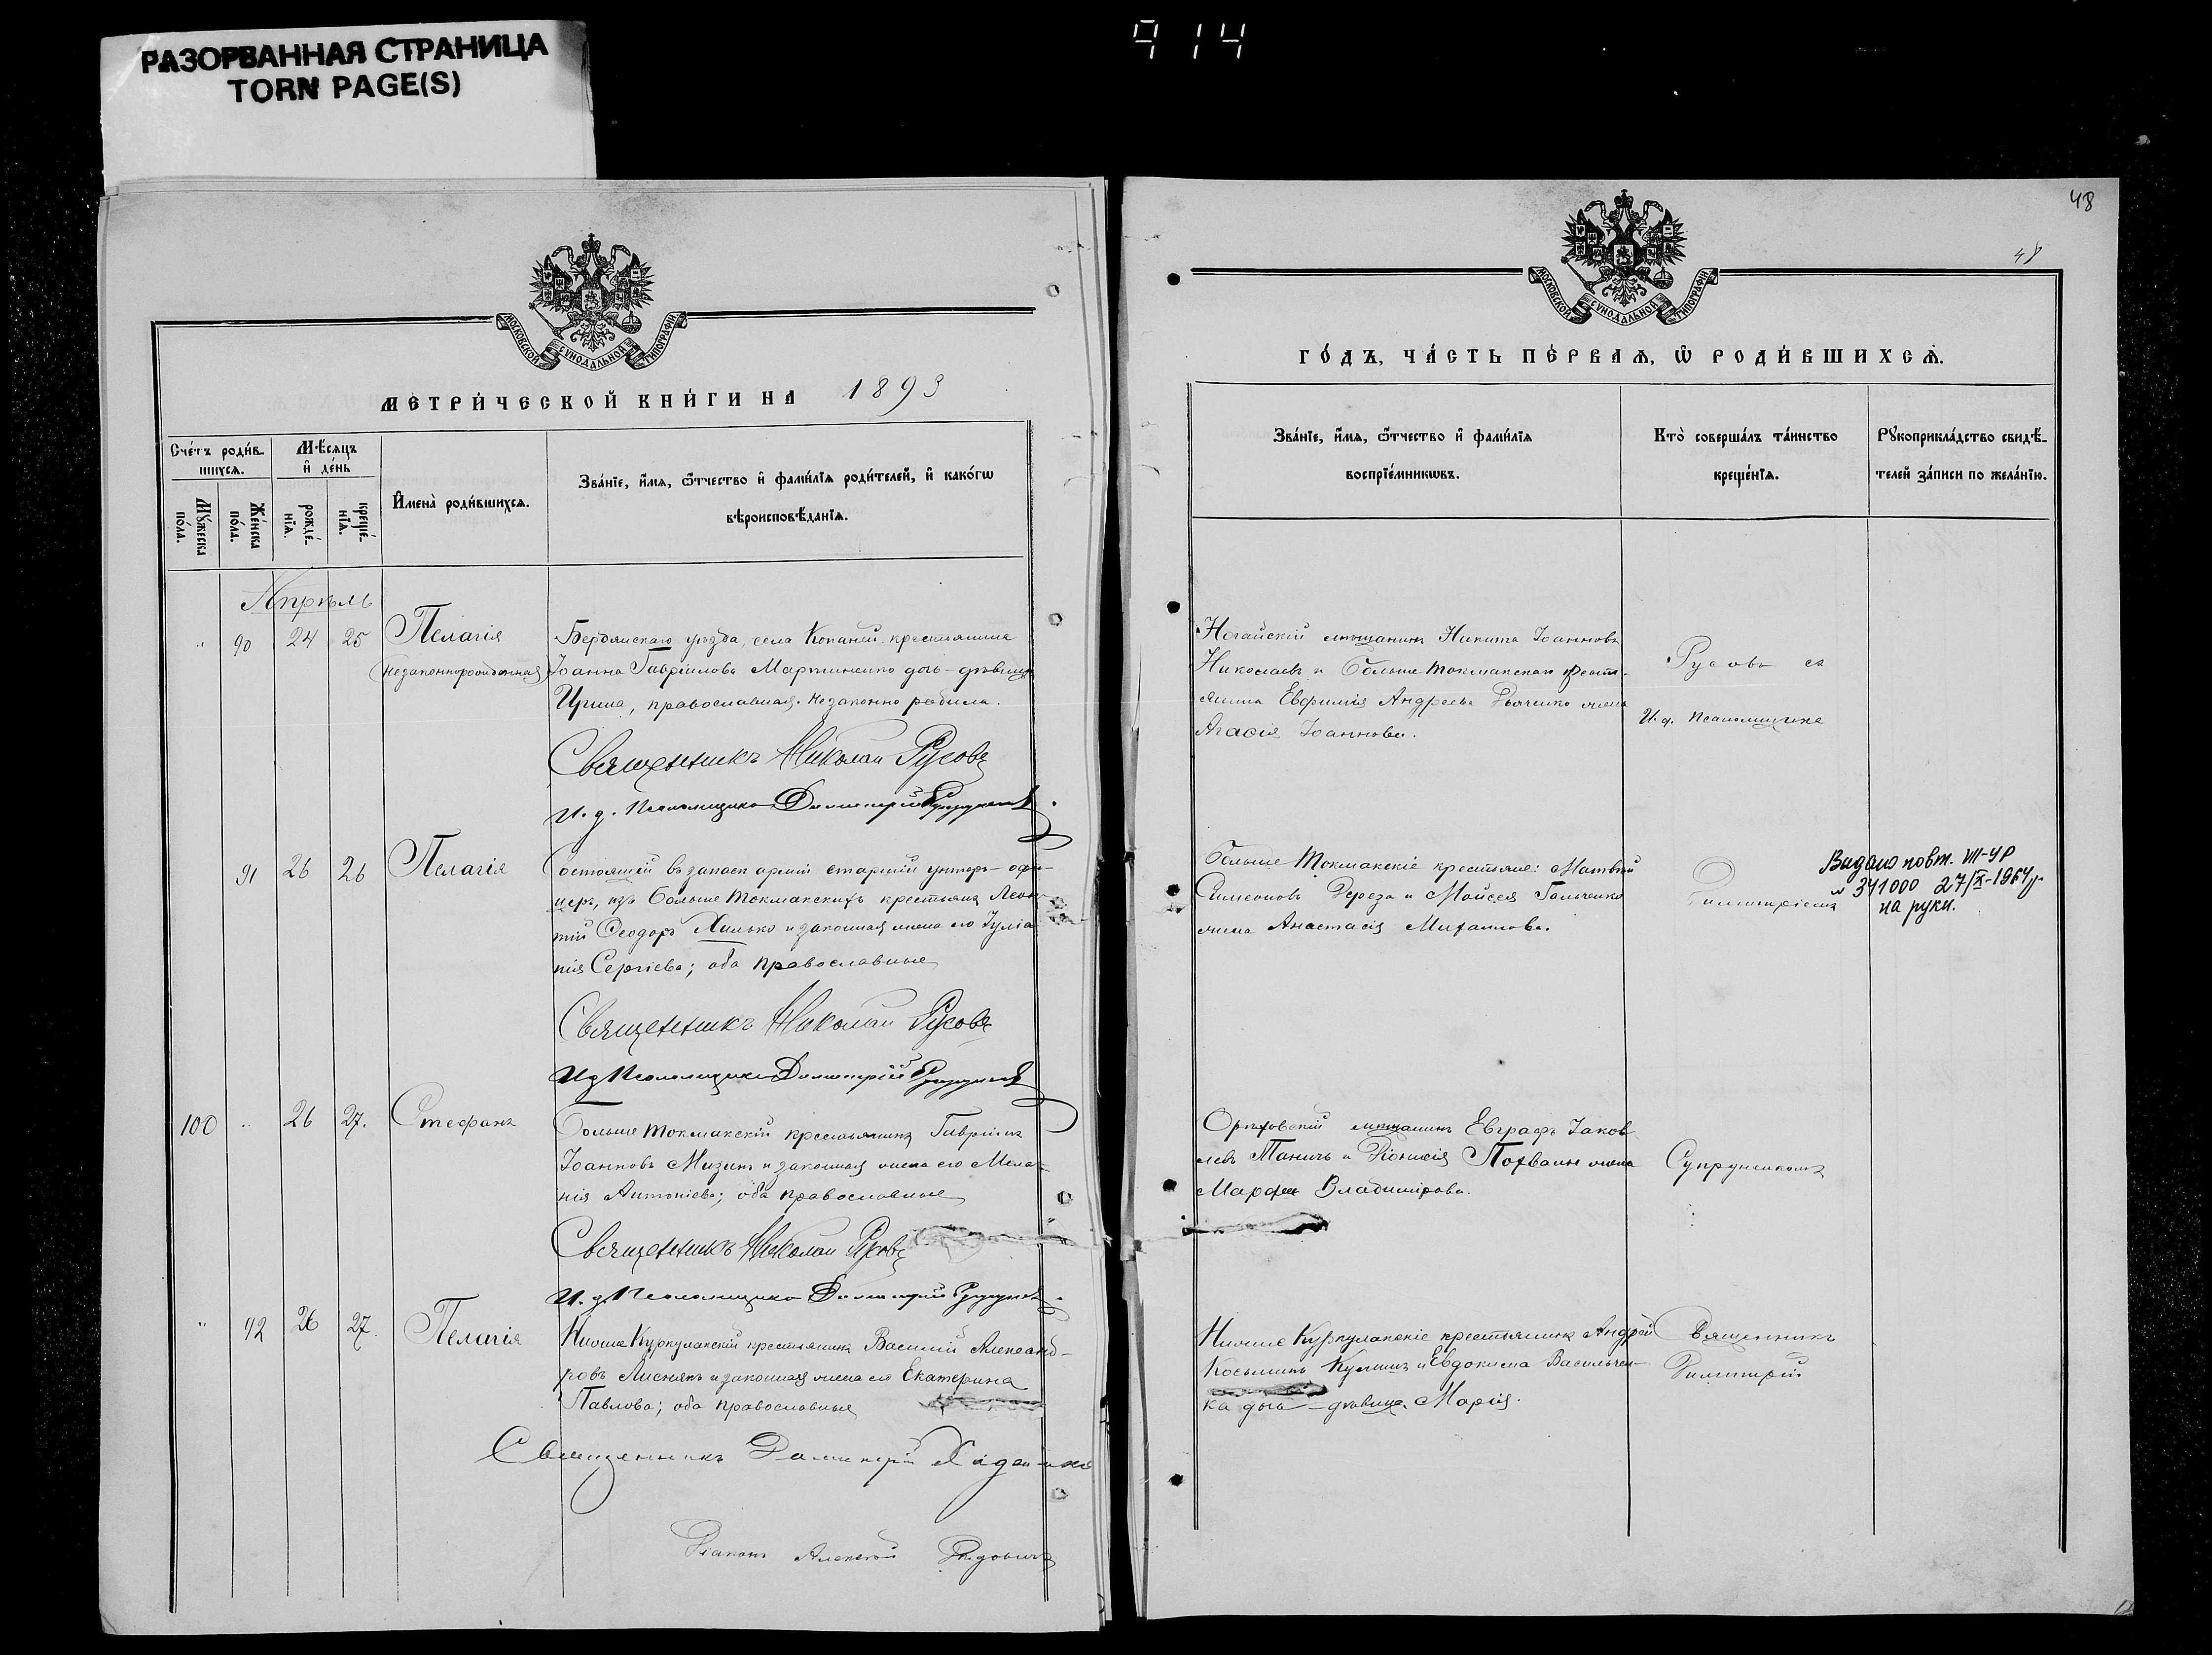 РАЗОРВАННАЯ СТРАНИЦА
TORN PAGE(S)
914
МОСКОВСКОЙ СѴНОДАЛЬНОЙ ТИПОГРАФІИ
МЕТРИ́ЧЕСКОЙ КНИ́ГИ НА 1893
Сче́тъ роди́в-
шихсѧ.
Мѣ́сяцъ
и҆ де́нь
Мꙋ́жеска
по́ла.
Же́нска
по́ла.
рожде́-
нїѧ.
креще́-
нїѧ.
И҆мена̀ роди́вшихсѧ.
Зва́нїе, и҆́мѧ, ѻ҆́тчество и҆ фами́лїѧ роди́телей, и҆ како́гѡ
вѣроисповѣ́данїѧ.
Апрѣль
" 90 24 25 Пелагія
Незаконнорожденная
Бердянскаго уѣзда, села Копаней крестьянина
Іоанна Гавріилова Мартиненко дочь-дѣвица
Ирина, православная. незаконно родила.
Священникъ Николай Русовъ
И. д. Псаломщика Димитрій
91 26 26 Пелагія
Состоящій въ запасѣ арміи старшій унтеръ-офи-
церъ, изъ Больше Токмакскихъ крестьянъ Леон-
тій Ѳеодоръ Хилько и законная жена его Іуліа
нія Сергіева; оба православные
Священникъ Николай Русовъ
Ид Псаломщика Димитрій
100 " 26 27. Стефанъ
Больше Токмакскій крестьянинъ Гавріилъ
Іоанновъ Мизинъ и законная жена его Мела-
нія Антоніева; оба православные
Священникъ Николай Русовъ
И. д. Псаломщика Димитрій
" 92 26 27. Пелагія
Нижне Куркулакскій крестьянинъ Василій Александ-
ровъ Лиснякъ и законная жена его Екатерина
Павлова; оба православные
Священникъ Димитрій
Діаконъ Алексѣй
48
48
МОСКОВСКОЙ СѴНОДАЛЬНОЙ ТИПОГРАФІИ
ГО́ДЪ, ЧА́СТЬ ПЕ́РВАѦ, Ѡ҆ РОДИ́ВШИХСѦ.
Зва́нїе, и҆́мѧ, ѻ҆́тчество и҆ фами́лїѧ
воспрїе́мникѡвъ.
Кто̀ соверша́лъ та́инство
креще́нїѧ.
Рꙋкоприкла́дство свидѣ́-
телей за́писи по жела́нїю.
Ногайскій мѣщанинъ Никита Іоанновъ
Николаевъ и Больше Токмакскаго крестья-
янина Евфимія Андреева Дьяченко жена
Агафія Іоаннова.
Русовъ съ
И. д. псаломщика
Больше Токмакскіе крестьяне: Матвѣй
Симеоновъ Дереза и Мойсея Гальченко
жена Анастасія Михаилова.
Димитріемъ
Видано повт. VIII-УР
№ 341000 27/X-1964 р.
на руки.
Орѣховскій мѣщанинъ Евграфъ Іаков
левъ Паничъ и Діонисія жена
Марфа Владимірова.
Супруненкомъ
Нижне Куркулакскіе крестьянинъ Андрей
Косьминъ и Евдокима Васильчен-
ка дочь-дѣвица Марія.
Священникъ
Димитрій